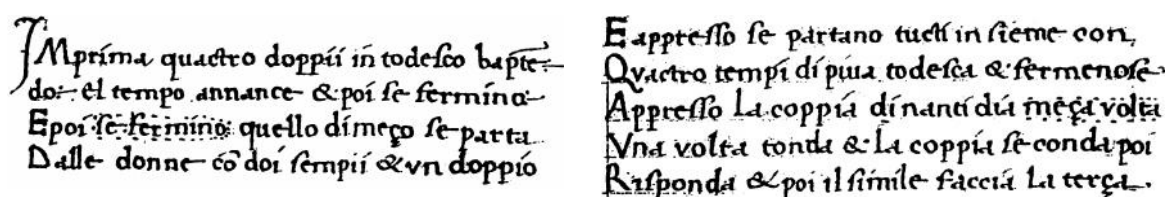 IMprima quactro doppii in todesco bapte
do: el tempo annance & poi se fermino
E poi se fermino quello di meço se parta
Dalle donne cõ doi sempii & vn doppio
E appresso se partano tucti in sieme con,
Qvactro tempi di piua todesca & fermenose
Appresso La coppia dinanti diã meça volta
Vna volta tonda & La coppia se conda poi
Risponda & poi il simile faccia La terça.